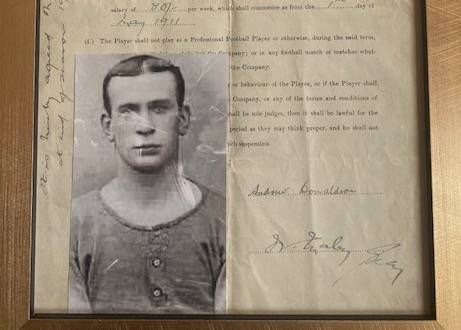 salary of 80/- per week, which shall commence as from the 1st day of
May 1911
(4.) The Player shall not play as a Professional Football Player or otherwise, during the said term,
Company; or in any football match or matches what-
the Company.
or behaviour of the Player, or if the Player shall
Company, or any of the terms and conditions of
shall be sole judges, then it shall be lawful for the
period as they may think proper, and he shall not
such suspension.
Andrew Donaldson
W. Maley Secy
It is hereby agreed
at end of season